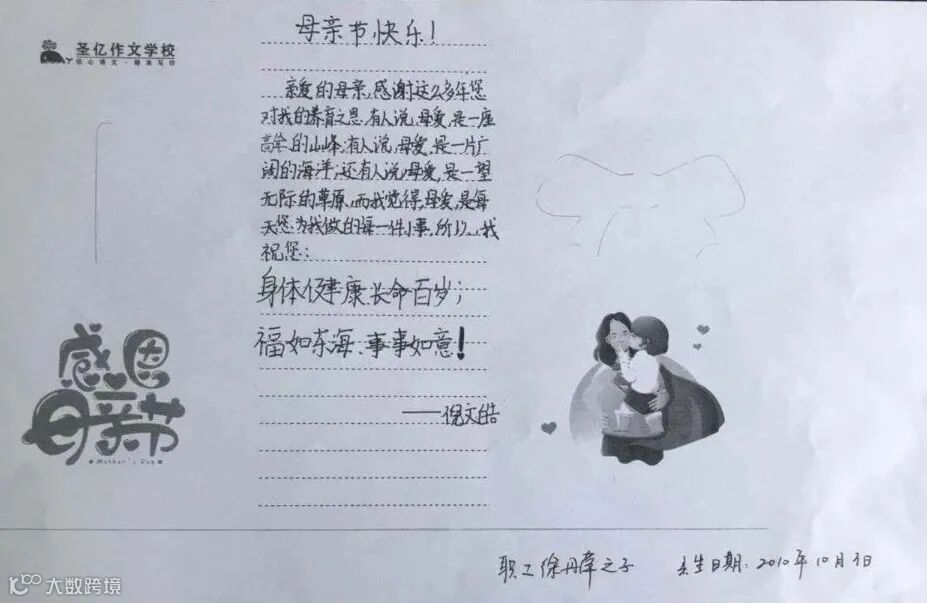 圣亿作文学校
母亲节快乐！
亲爱的母亲，感谢这么多年您
对我的养育之恩，有人说，母爱，是一座
高耸的山峰；有人说，母爱，是一片广
阔的海洋；还有人说，母爱，是一望
无际的草原，而我觉得，母爱，是每
天您为我做的每一件小事，所以，我
祝您：
身体健康、长命百岁；
福如东海、事事如意！
——倪文皓
感恩
母亲节
Mother's Day
职工徐丹章之子 出生日期：2010年10月
大数跨境